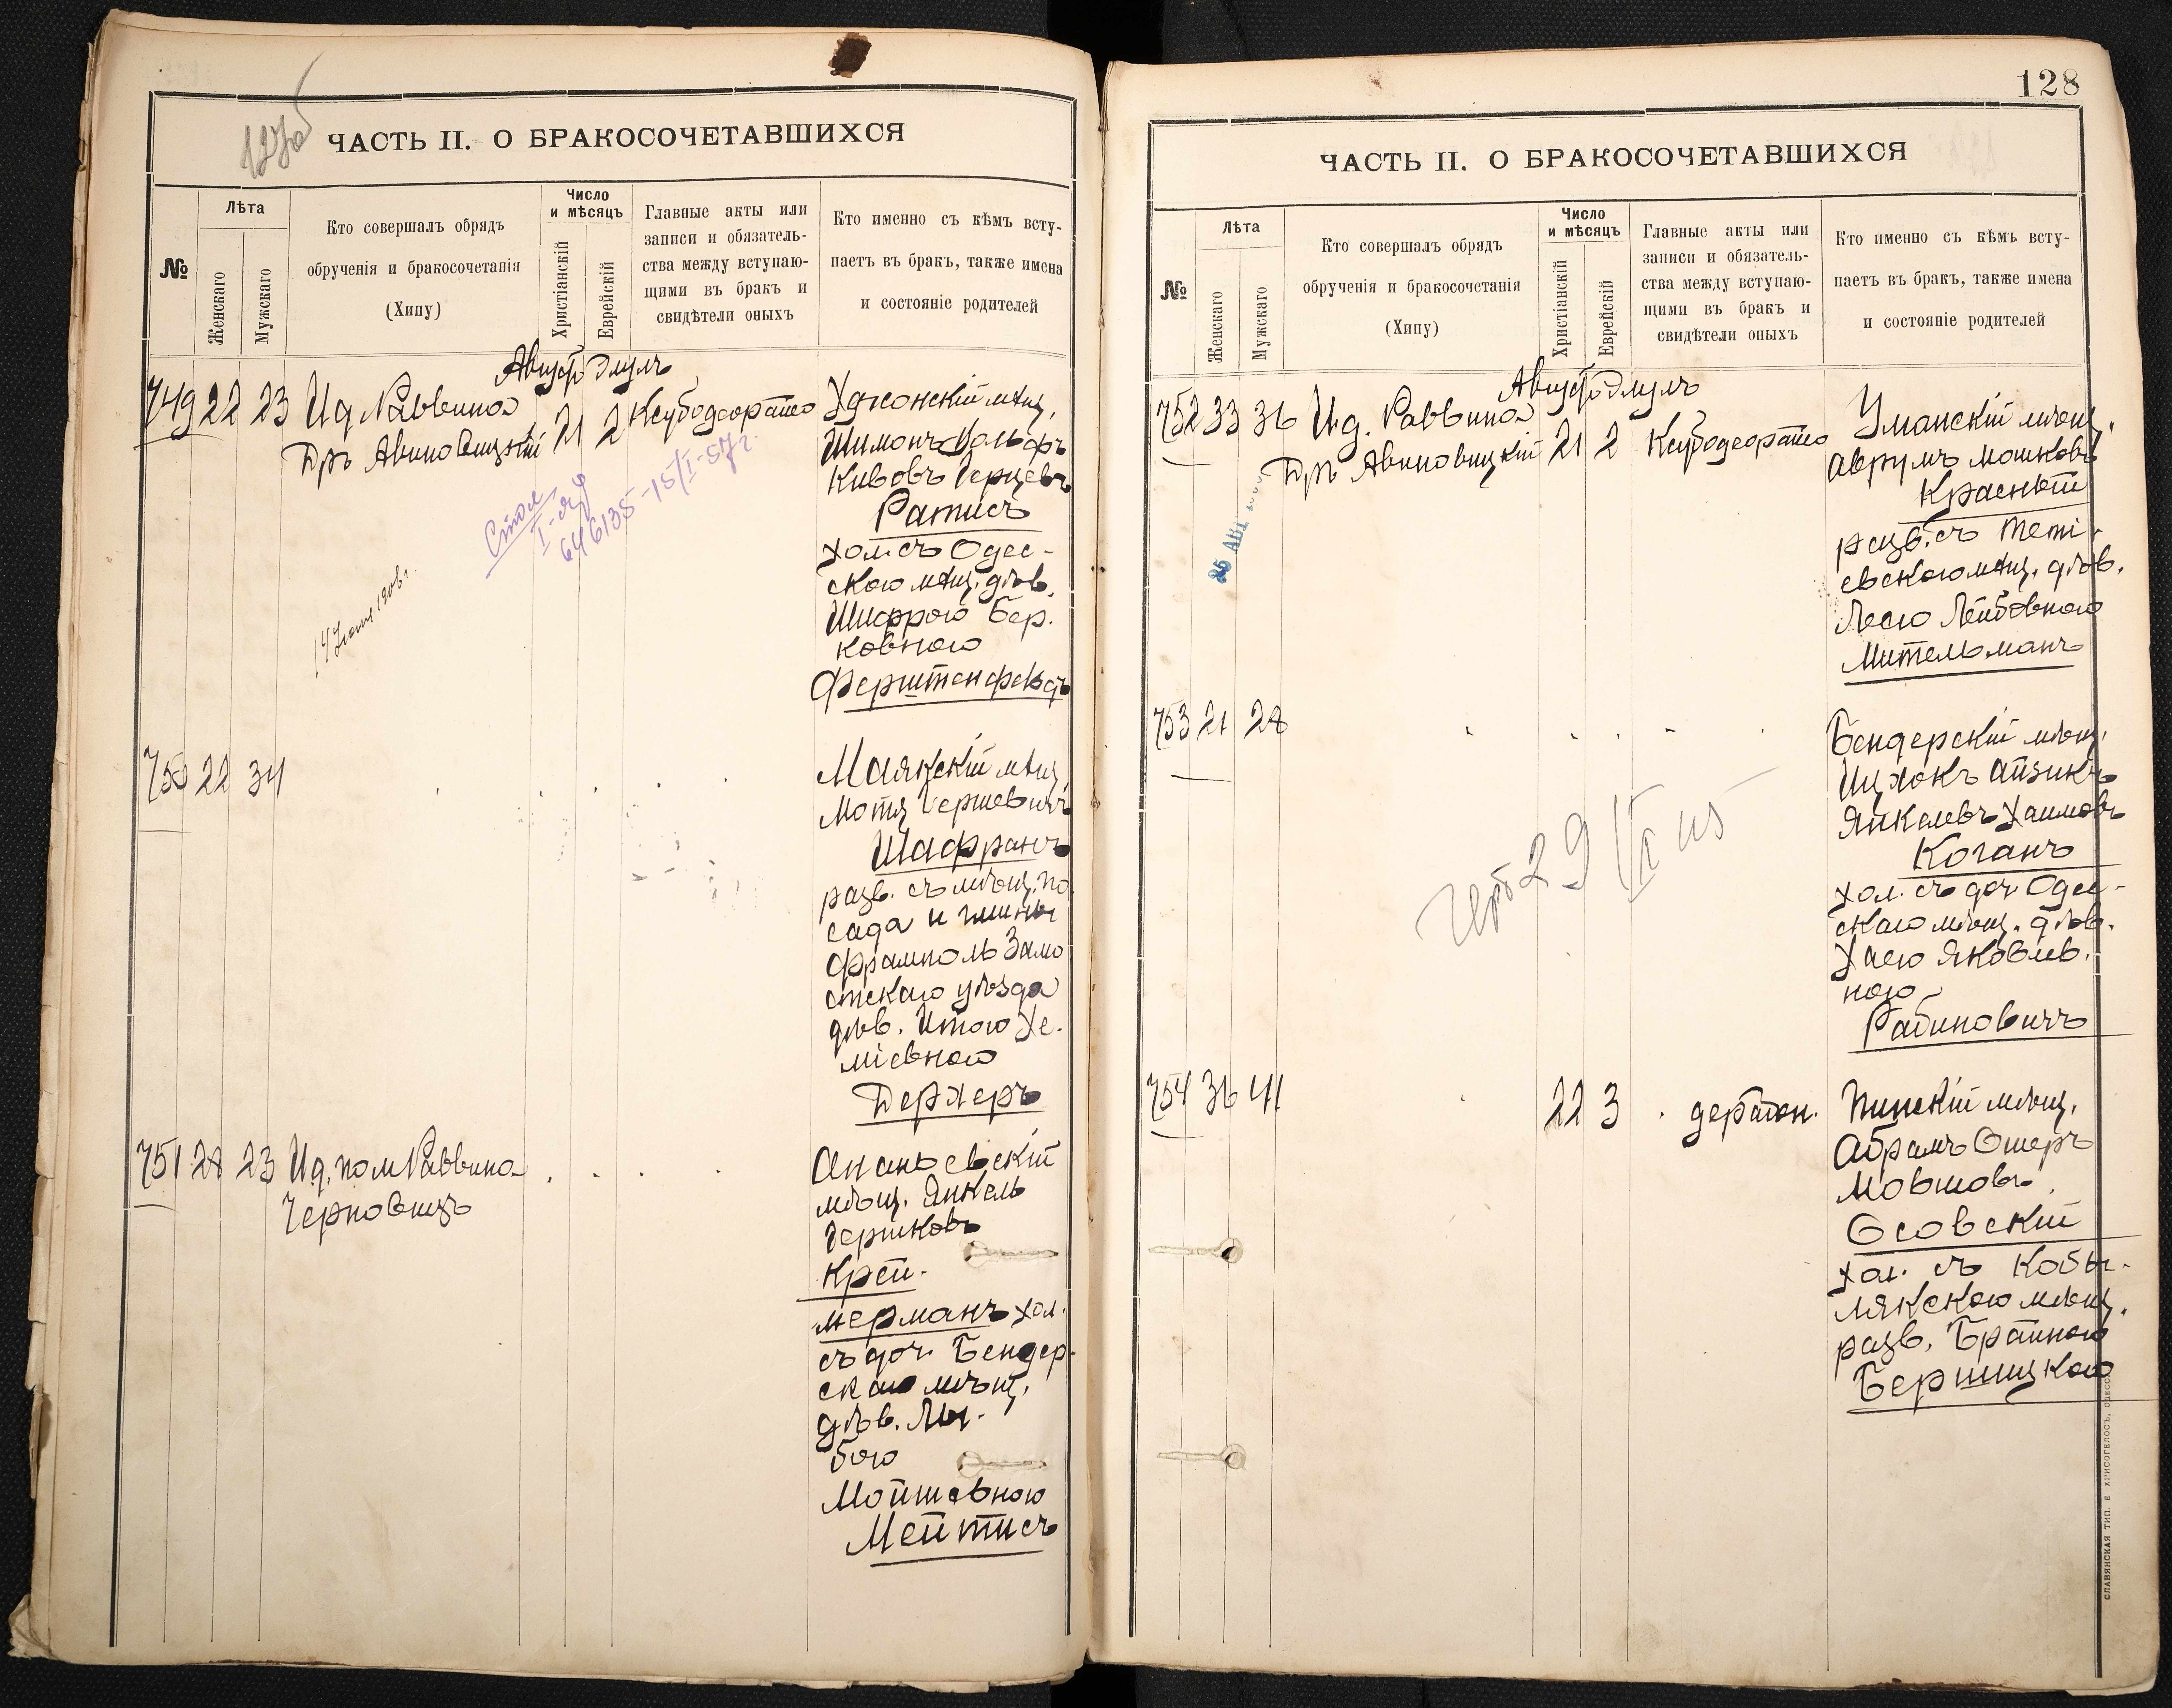 127об
ЧАСТЬ II. О БРАКОСОЧЕТАВШИХСЯ
№
Лѣта
Женскаго
Мужскаго
Кто совершалъ обрядъ
обрученія и бракосочетанія
(Хипу)
Число
и мѣсяцъ
Христіанскій
Еврейскій
Главные акты или
записи и обязатель-
ства между вступаю-
щими въ бракъ и
свидѣтели оныхъ
Кто именно съ кѣмъ всту-
паетъ въ бракъ, также имена
и состояніе родителей
Август Элулъ
749 22 23 Ид Раввина
Дръ Авиновицкій 21 2
Шимонъ Вольфъ
Кивовъ Герцевъ
Ратисъ
хол. съ Одес-
скою мѣщ. дѣв.
Шифрою Бер.
ковною
Ферштенфельдъ
Стол
646135-15/I-57г.
750 22 34
Маякскій мѣщ.
Мотя Гершевичъ
Шафранъ
разв. съ мѣщ. по
сада и гмины
Фрамполь Замо
стскаго уѣзда
дѣв. Итою Хе.
міевною
Дерхеръ
751 28 23 Ид. пом Раввина
Черновицъ
Ананьевскій
мѣщ. Янкель
Гершковъ
Крей-
мерманъ хол.
съ доч. Бендер-
скаго мѣщ.
дѣв. Лы-
бою
Мойшевною
Мейтисъ
128
ЧАСТЬ II. О БРАКОСОЧЕТАВШИХСЯ
№
Лѣта
Женскаго
Мужскаго
Кто совершалъ обрядъ
обрученія и бракосочетанія
(Хипу)
Число
и мѣсяцъ
Христіанскій
Еврейскій
Главные акты или
записи и обязатель-
ства между вступаю-
щими въ бракъ и
свидѣтели оныхъ
Кто именно съ кѣмъ всту-
паетъ въ бракъ, также имена
и состояніе родителей
Август Элулъ
752 33 36 Ид. Раввина
Дръ Авиновицкій 21 2
Уманскій мѣщ.
Аврумъ Мошковъ
Красный
разв. съ Тети-
евскою мѣщ. дѣв.
Лесю Лейбовною
Мительманъ
25 АВГ
753 21 28
Бендерскій мѣщ.
Ицхокъ Айзикъ
Янкелевъ Хаимовъ
Коганъ
хол. съ доч Одес-
скаго мѣщ. дѣв.
Хаею Яковлев.
ною
Рабиновичъ
754 36 41
22 3
Пинскій мѣщ.
Абрамъ Ошеръ
Мовшовъ
Осовскій
хол. съ Кобы-
лякскою мѣщ.
разв. Брайною
Бершицкою
СЛАВЯНСКАЯ ТИП. Е ХРИСОГЕЛОСЪ, ОДЕССА